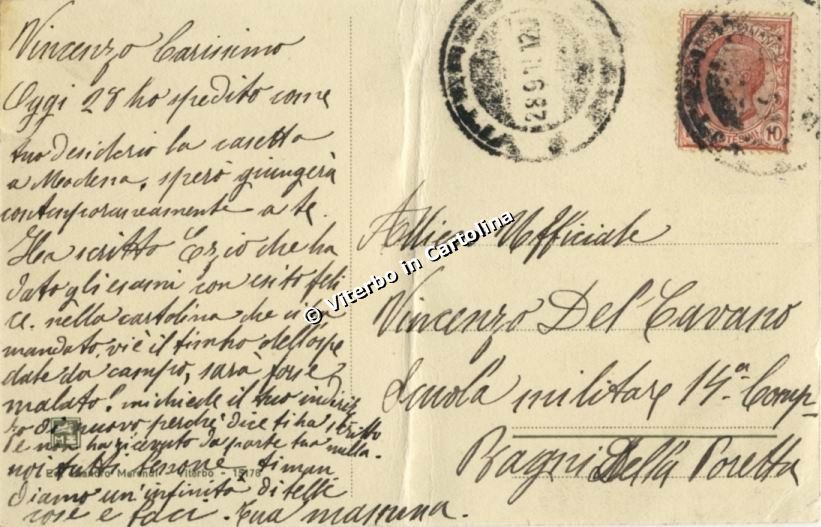 Vincenzo Carissimo
Oggi 28 ho spedito come
tuo desiderio la casetta
a Modena, spero giungerà
contemporaneamente a te.
Ha scritto Ezio che ha
dato gli esami con esito feli
ce. nella cartolina che
mandato, vi è il timbro dell'ospe
dale da campo, sarà forse
malato? mi chiede il tuo indiriz
zo di nuovo perchè dice ti ha scritto
e non ha ricevuto da parte tua nulla.
noi tutti benone, ti man
diamo un'infinità di belle
cose e baci. tua mammina.
Viterbo - 15176
VITERBO
28.9.17.12
10
Allievo Ufficiale
Vincenzo Del Cavano
Scuola militare 14ª Comp
Bagni Della Poretta
© Viterbo in Cartolina